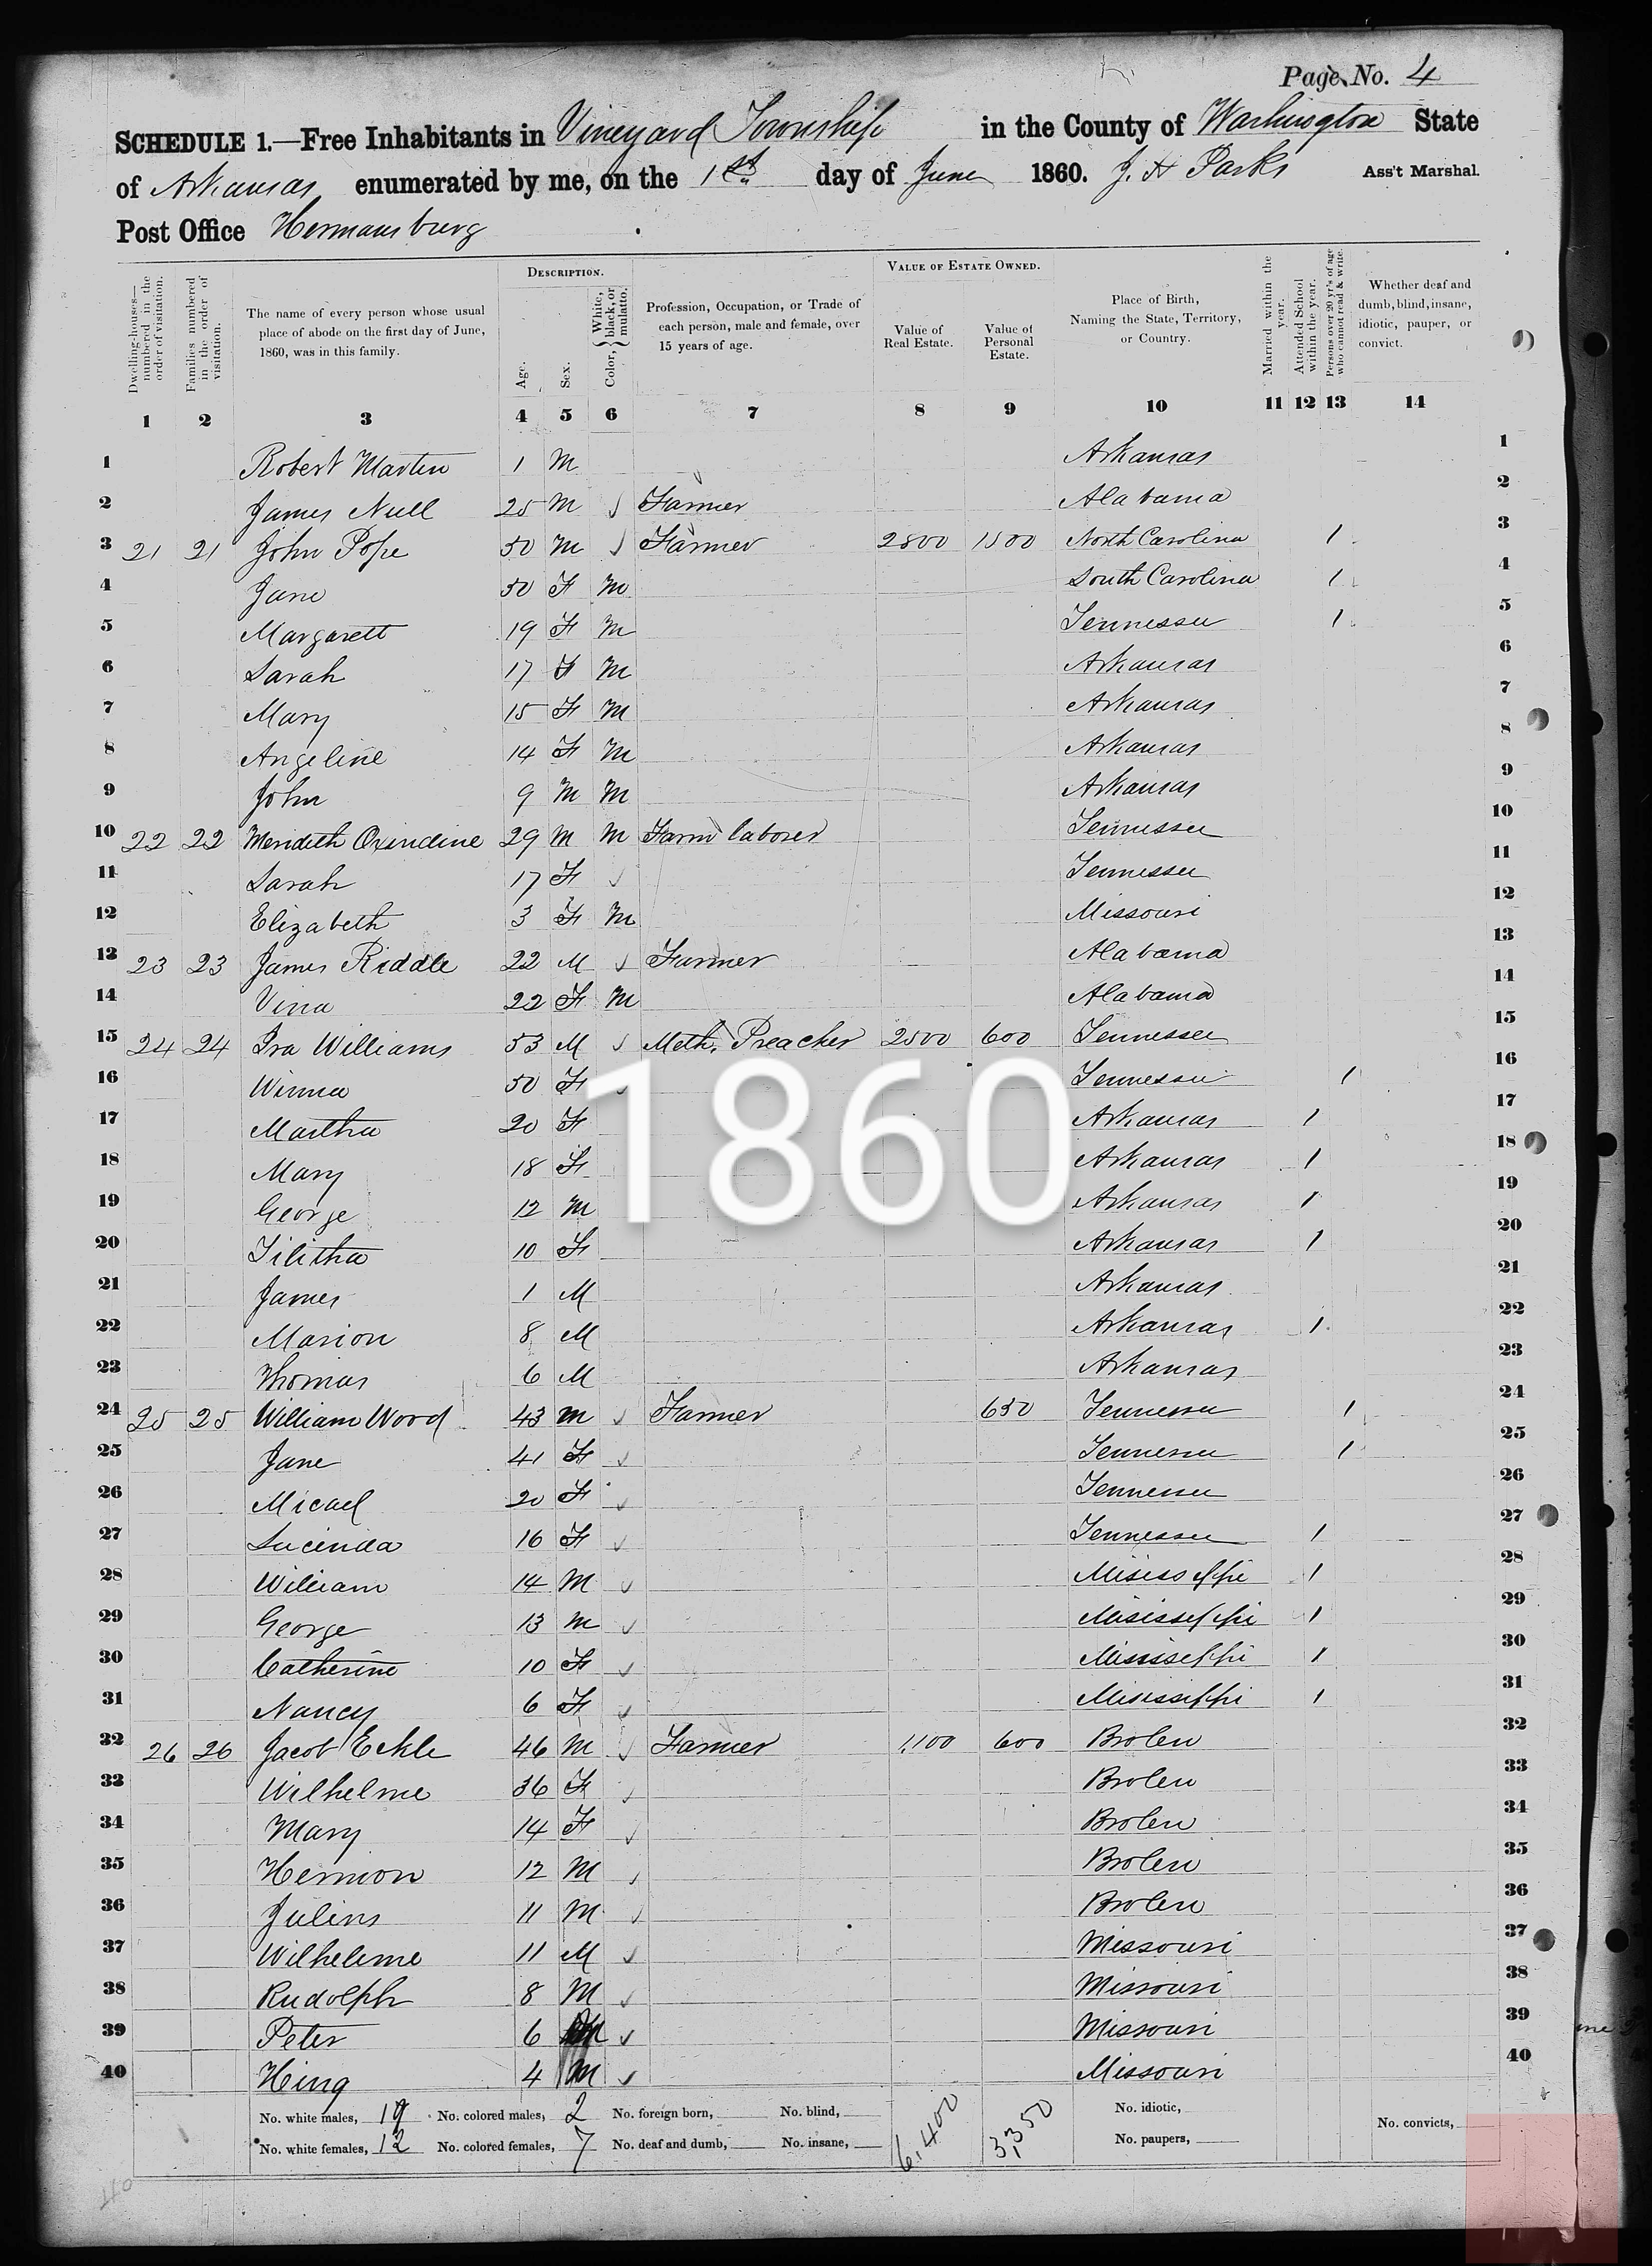 Page No. 4
SCHEDULE 1.—Free Inhabitants in Vineyard Township in the County of Washington State
of Arkansas enumerated by me, on the 1st day of June 1860. J. H Parks Ass't Marshal.
Post Office Hermansburg
Dwelling-houses—numbered in the order of visitation.
Families numbered in the order of visitation.
The name of every person whose usual place of abode on the first day of June, 1860, was in this family.
DESCRIPTION.
Age.
Sex.
Color, { White, black, or mulatto.
Profession, Occupation, or Trade of each person, male and female, over 15 years of age.
VALUE OF ESTATE OWNED.
Value of Real Estate.
Value of Personal Estate.
Place of Birth, Naming the State, Territory, or Country.
Married within the year.
Attended School within the year.
Persons over 20 yr's of age who cannot read & write.
Whether deaf and dumb, blind, insane, idiotic, pauper, or convict.
1 2 3 4 5 6 7 8 9 10 11 12 13 14
1 Robert Martin 1 M Arkansas 1
2 James Null 25 M Farmer Alabama 2
3 21 21 John Pope 50 M Farmer 2800 1500 North Carolina 1 3
4 Jane 50 F M South Carolina 1 4
5 Margarett 19 F M Tennessee 1 5
6 Sarah 17 F M Arkansas 6
7 Mary 15 F M Arkansas 7
8 Angeline 14 F M Arkansas 8
9 John 9 M M Arkansas 9
10 22 22 Meridith Oxindine 29 M M Farm laborer Tennessee 10
11 Sarah 17 F Tennessee 11
12 Elizabeth 3 F M Missouri 12
13 23 23 James Riddle 22 M Farmer Alabama 13
14 Vina 22 F M Alabama 14
15 24 24 Ira Williams 53 M Meth. Preacher 2500 600 Tennessee 15
16 Winna 50 F Tennessee 1 16
17 Martha 20 F Arkansas 1 17
18 Mary 18 F Arkansas 1 18
19 George 12 M Arkansas 1 19
20 Tilitha 10 F Arkansas 1 20
21 James 1 M Arkansas 21
22 Marion 8 M Arkansas 1 22
23 Thomas 6 M Arkansas 23
24 25 25 William Wood 43 M Farmer 650 Tennessee 1 24
25 Jane 41 F Tennessee 1 25
26 Micael 20 F Tennessee 26
27 Lucinda 16 F Tennessee 1 27
28 William 14 M Misissippi 1 28
29 George 13 M Misissippi 1 29
30 Catherine 10 F Misissippi 1 30
31 Nancy 6 F Misissippi 1 31
32 26 26 Jacob Eckle 46 M Farmer 1,100 600 Brolen 32
33 Wilhelme 36 F Brolen 33
34 Mary 14 F Brolen 34
35 Hermon 12 M Brolen 35
36 Julius 11 M Brolen 36
37 Wilhelme 11 M Missouri 37
38 Rudolph 8 M Missouri 38
39 Peter 6 M Missouri 39
40 Hing 4 M Missouri 40
1860
No. white males, 19 No. colored males, 2 No. foreign born, No. blind, 6,400 3,350 No. idiotic, No. convicts,
No. white females, 12 No. colored females, 7 No. deaf and dumb, No. insane, No. paupers,